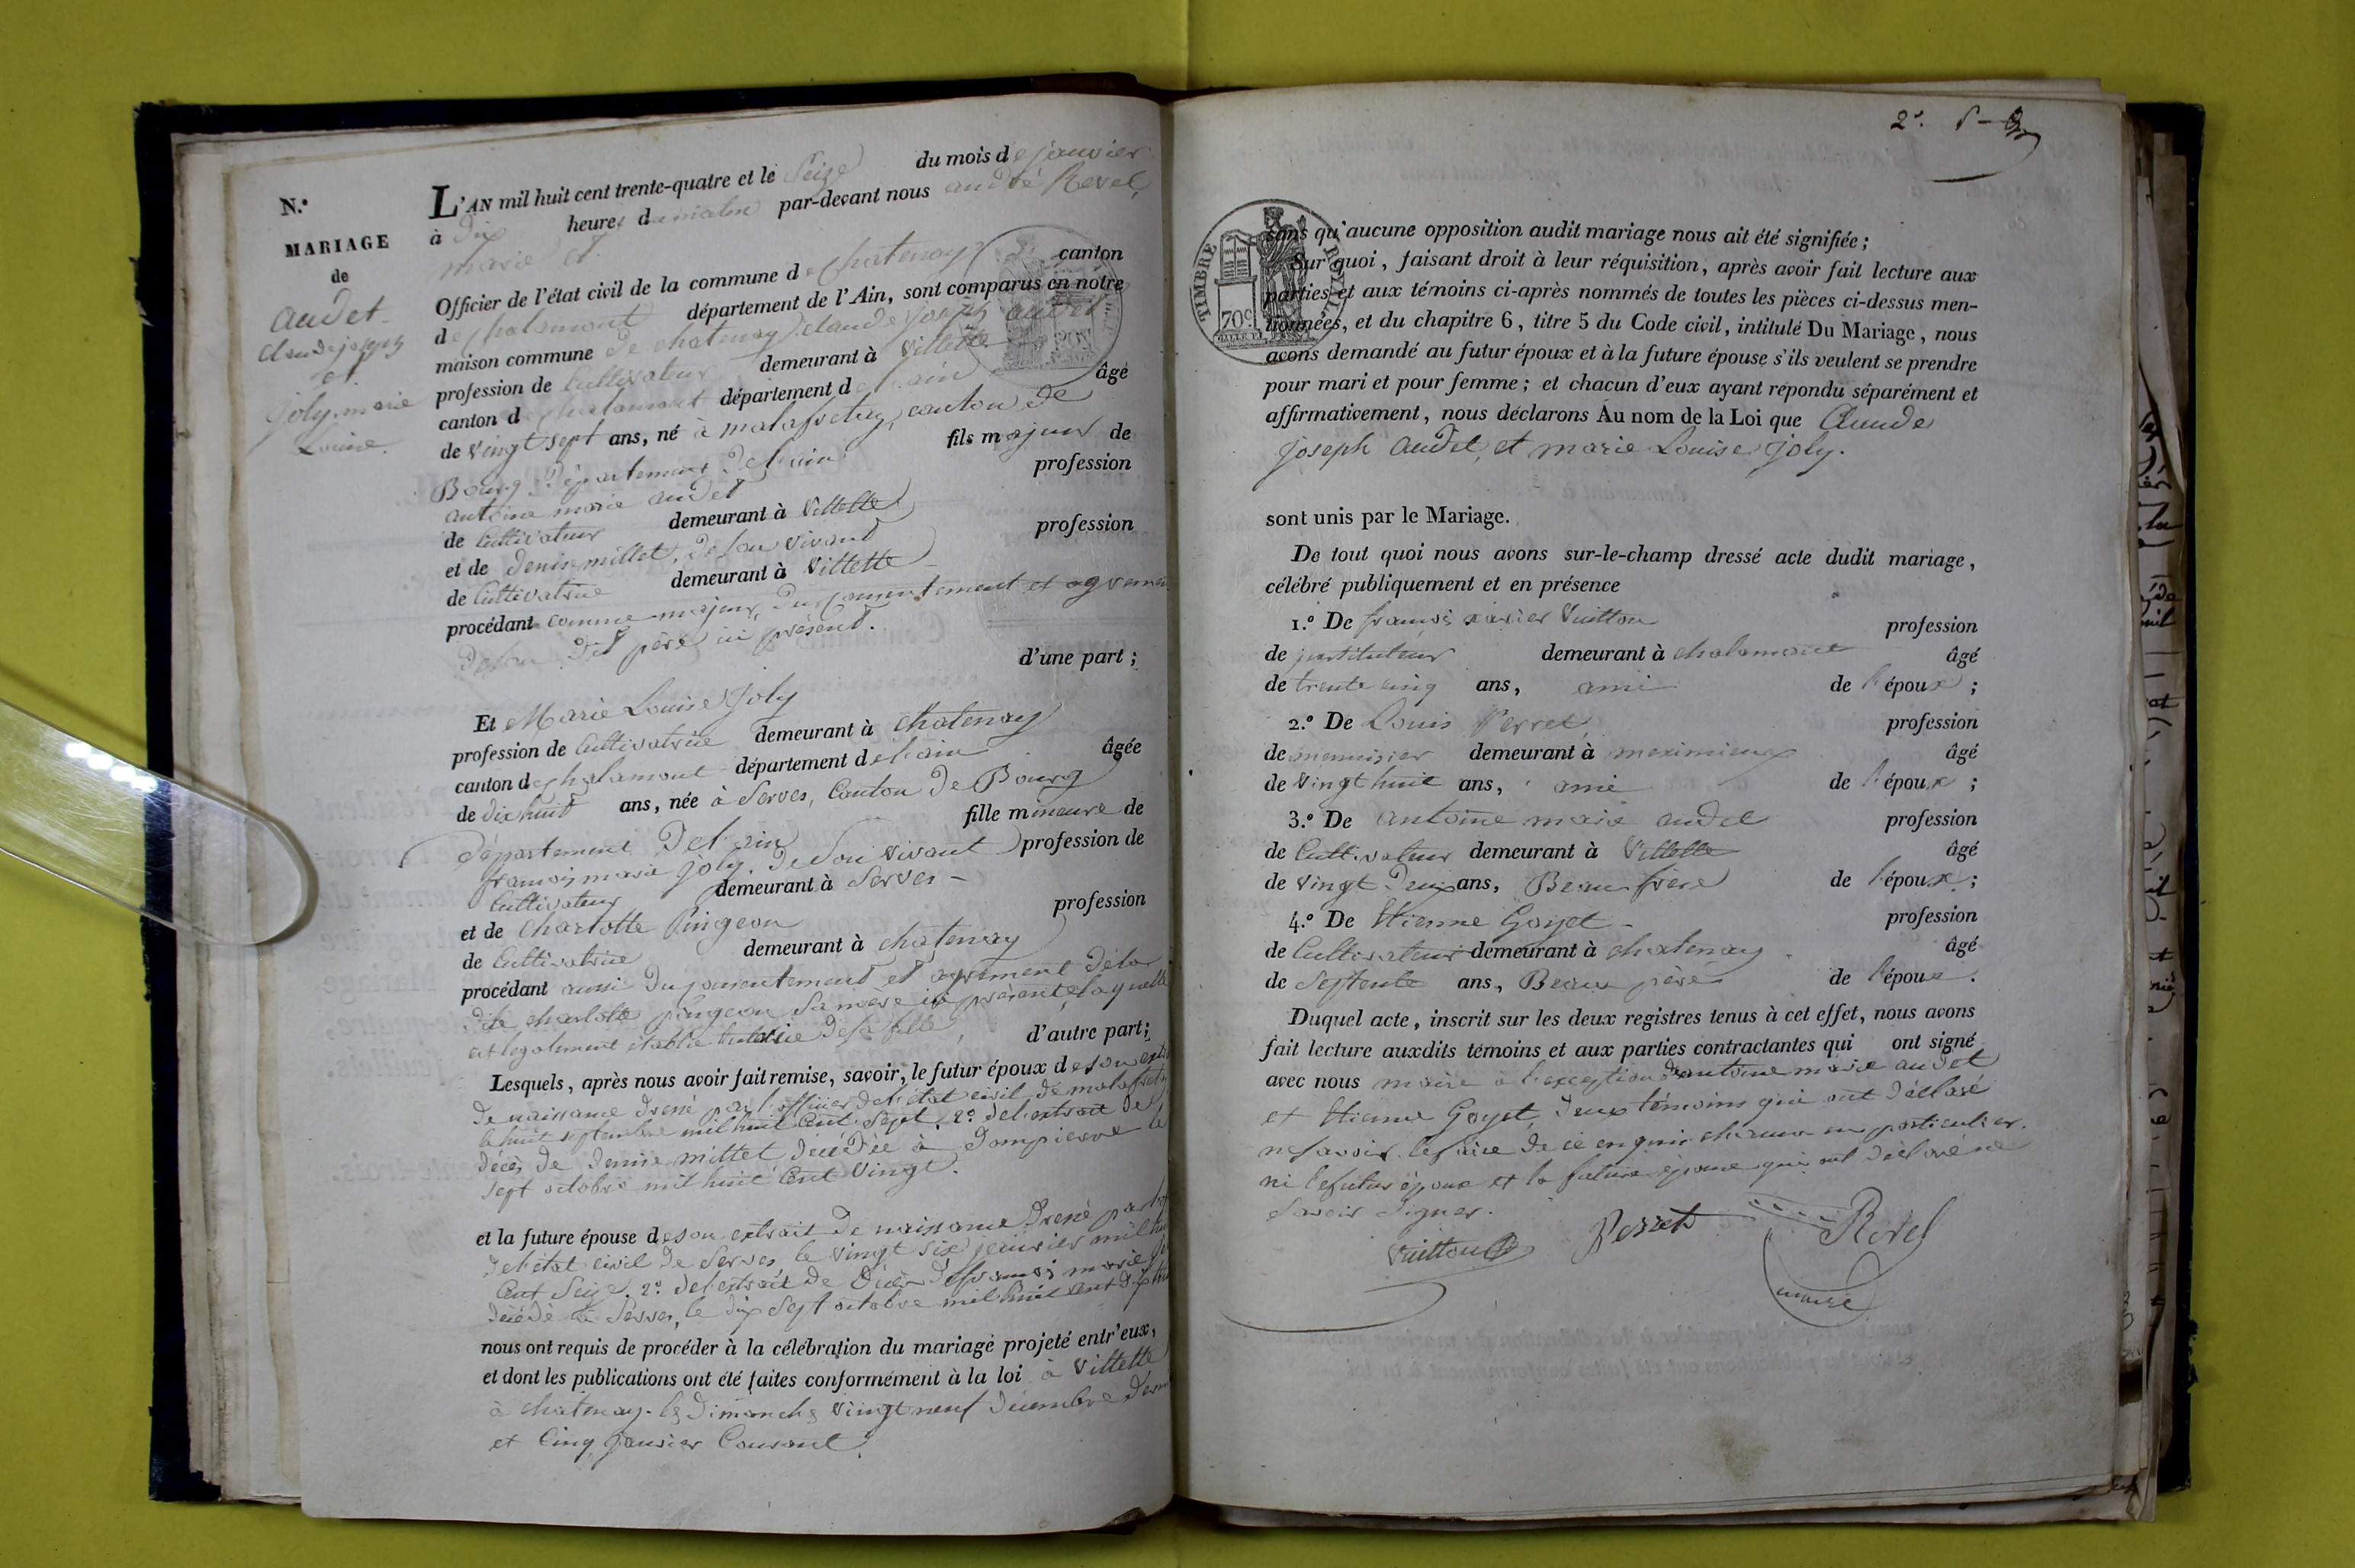 N.º
MARIAGE
de
Audet
Claude joseph
et
joly marie
Louise.
L'AN mil huit cent trente-quatre et le Seize du mois de janvier
à dix heures du matin par-devant nous andré Revel,
maire et
Officier de l'état civil de la commune de chatenay canton
de chalamont département de l'Ain, sont comparus en notre
maison commune de chatenay Claude joseph audet
profession de Cultivateur demeurant à Villette
canton de chalamont département de l'ain âgé
de Vingt sept ans, né à malafretaz, canton de
Bourg département de l'ain fils majeur de
antoine marie audet profession
de Cultivateur demeurant à Villette
et de Denise millet, de son vivant profession
de Cultivatrice demeurant à Villette
procédant comme majeur, du consentement et agrement
de son dit père ici présent.
d'une part ;
Et Marie Louise Joly
profession de Cultivatrice demeurant à chatenay
canton de chalamont département de l'ain âgée
de dix huit ans, née à Servas, Canton de Bourg
département de l'ain fille mineure de
françois marie joly, de Son Vivant profession de
Cultivateur demeurant à Servas
et de Charlotte Pingeon profession
de Cultivatrice demeurant à chatenay
procédant aussi du consentement et agrément de la
dite charlotte pingeon Sa mère ici présente laquelle
est légalement établie tutrice de sa fille, d'autre part ;
Lesquels, après nous avoir fait remise, savoir, le futur époux de son
de naissance dressé par l'officier de l'état civil de malafretaz
le huit septembre mil huit Cent Sept, 2º de l'extrait de
décès de Denise millet décédée à Dompierre le
sept octobre mil huit Cent Vingt.
et la future épouse de son extrait de naissance dressé par
de l'état civil de Servas, le vingt six janvier mil
Cent Seize. 2º de l'extrait de décès de françois marie
décédé à Servas, le dix Sept octobre mil huit cent
nous ont requis de procéder à la célébration du mariage projeté entr'eux,
et dont les publications ont été faites conformément à la loi à Villette
à chatenay les Dimanches Vingt neuf décembre
et Cinq Janvier Courant.
2e.
TIMBRE ROYAL
70c
sans qu'aucune opposition audit mariage nous ait été signifiée ;
Sur quoi, faisant droit à leur réquisition, après avoir fait lecture aux
parties et aux témoins ci-après nommés de toutes les pièces ci-dessus men-
tionnées, et du chapitre 6, titre 5 du Code civil, intitulé Du Mariage, nous
avons demandé au futur époux et à la future épouse s'ils veulent se prendre
pour mari et pour femme ; et chacun d'eux ayant répondu séparément et
affirmativement, nous déclarons Au nom de la Loi que Claude
Joseph Audet, et marie Louise Joly.
sont unis par le Mariage.
De tout quoi nous avons sur-le-champ dressé acte dudit mariage,
célébré publiquement et en présence
1.º De françois xavier Vuitton profession
de instituteur demeurant à chalamont âgé
de trente cinq ans, ami de l'époux ;
2.º De Louis Perret profession
de menuisier demeurant à meximieux âgé
de Vingt huit ans, ami de l'époux ;
3.º De antoine marie audet profession
de Cultivateur demeurant à Villette âgé
de Vingt Deux ans, Beau frère de l'époux ;
4.º De Etienne Goyet profession
de Cultivateur demeurant à chatenay âgé
de Septente ans, Beau père de l'époux .
Duquel acte, inscrit sur les deux registres tenus à cet effet, nous avons
fait lecture auxdits témoins et aux parties contractantes qui ont signé
avec nous maire à l'exception de antoine marie audet
et Etienne Goyet, deux témoins qui ont déclaré
ne savoir le faire de ce enquis chacun en particulier,
ni le futur époux et la future épouse qui ont déclaré ne
Savoir Signer.
Vuitton Perret Revel
maire